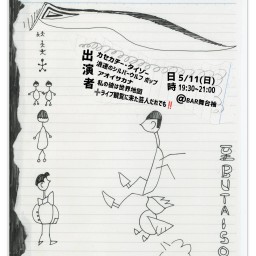 出演者
カセカチー・タイゾー
浪速のシルバーウルフ ポップ
アオイサカナ
私の彼は世界地図
+ライブ観覧に来た芸人だれでも!!
日時
5/11(日)
19:30~21:00
@BAR舞台袖
BUTAISO